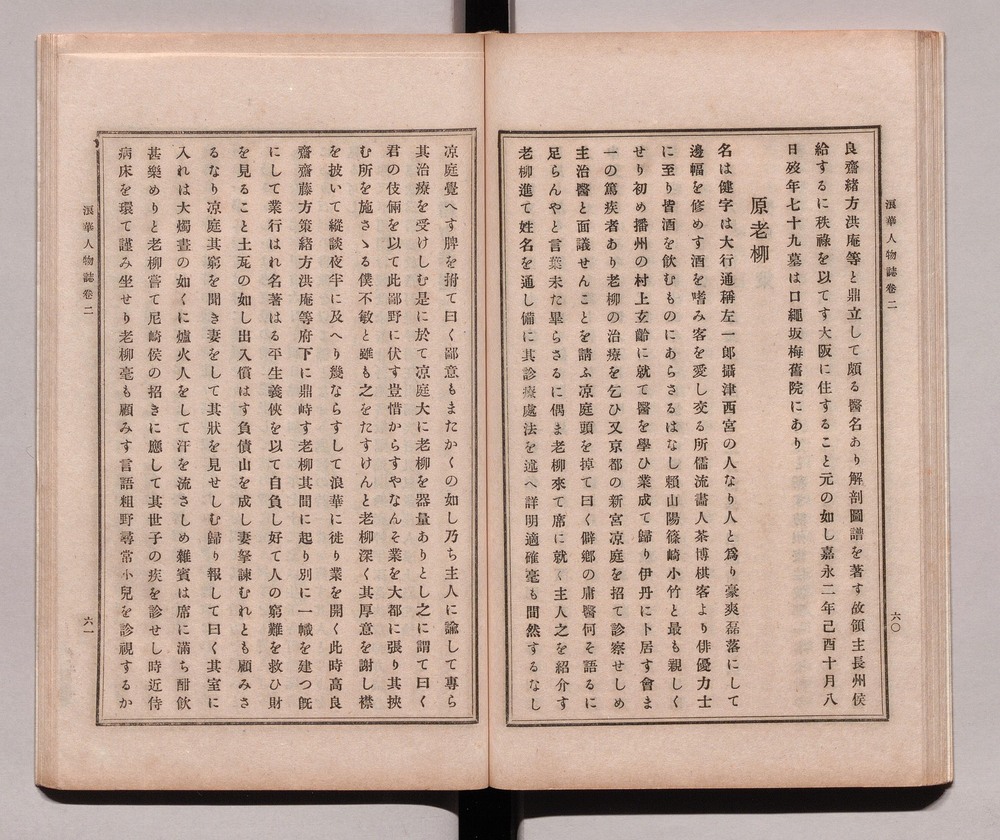 浪華人物誌卷二
六〇
良齋緒方洪庵等と鼎立して頗る醫名あり解剖圖譜を著す故領主長州侯
給するに秩祿を以てす大阪に住すること元の如し嘉永二年己酉十月八
日歿年七十九墓は口繩坂梅舊院にあり
原老柳
名は健字は大行通稱左一郎攝津西宮の人なり人と爲り豪爽磊落にして
邊幅を修めす酒を嗜み客を愛し交る所儒流畵人茶博棋客より俳優力士
に至り皆酒を飮むものにあらさるはなし賴山陽篠崎小竹と最も親しく
せり初め播州の村上玄齡に就て醫を學ひ業成て歸り伊丹に卜居す會ま
一の篤疾者あり老柳の治療を乞ひ又京都の新宮凉庭を招て診察せしめ
主治醫と面議せんことを請ふ凉庭頭を掉て曰く僻鄕の庸醫何そ語るに
足らんやと言葉未た畢らさるに偶ま老柳來て席に就く主人之を紹介す
老柳進て姓名を通し備に其診療處法を述へ詳明適確毫も間然するなし
凉庭覺へす脾を搚て曰く鄙意もまたかくの如し乃ち主人に諭して專ら
其治療を受けしむ是に於て凉庭大に老柳を器量ありとし之に謂て曰く
君の伎倆を以て此鄙野に伏す豈惜からすやなんそ業を大都に張り其挾
む所を施さゝる僕不敏と雖も之をたすけんと老柳深く其厚意を謝し襟
を披いて縱談夜半に及へり幾ならすして浪華に徙り業を開く此時高良
齋齋藤方策緒方洪庵等府下に鼎峙す老柳其間に起り別に一幟を建つ旣
にして業行はれ名著はる平生義俠を以て自負し好て人の窮難を救ひ財
を見ること土瓦の如し出入償はす負債山を成し妻孥諫むれとも顧みさ
るなり凉庭其窮を聞き妻をして其狀を見せしむ歸り報して曰く其室に
入れは大燭晝の如くに爐火人をして汗を流さしめ雜賓は席に滿ち酣飮
甚樂めりと老柳嘗て尼崎侯の招きに應して其世子の疾を診せし時近侍
病床を環て謹み坐せり老柳毫も顧みす言語粗野尋常小兒を診視するか
浪華人物誌卷二
六一